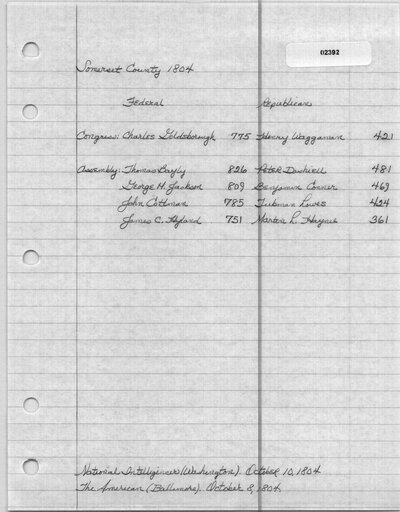 02392
Somerset County 1804
Federal Republican
Congress: Charles Goldsborough 775 Henry Waggaman 421
Assembly: Thomas Bayly 826 Peter Dashiell 481
George H. Jackson 809 Benjamin Conner 469
John Cottman 785 Tubman Lowes 424
James C. Hyland 751 Martin L. Haynie 361
National Intelligencer (Washington). October 10, 1804
The American (Baltimore). October 8, 1804